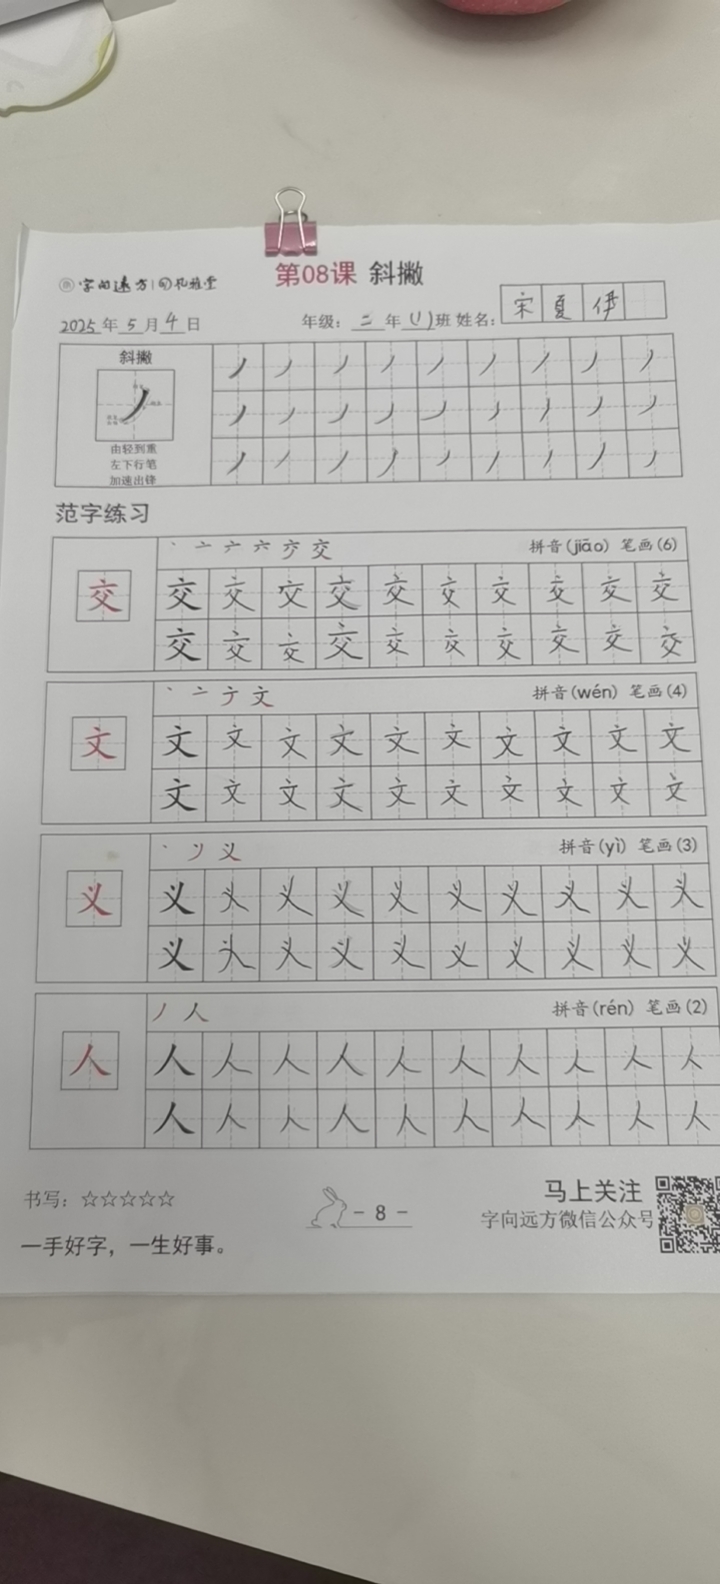 字向远方
第08课 斜撇
2025年5月4日 年级：二年(1)班 姓名：宋夏伊
斜撇
由轻到重
左下行笔
加速出锋
范字练习
丶 亠 六 交 拼音(jiāo) 笔画(6)
交 交 交 交 交 交 交 交 交 交 交
交 交 交 交 交 交 交 交 交 交
丶 亠 文 拼音(wén) 笔画(4)
文 文 文 文 文 文 文 文 文 文 文
文 文 文 文 文 文 文 文 文 文
丶 义 拼音(yì) 笔画(3)
义 义 义 义 义 义 义 义 义 义 义
义 义 义 义 义 义 义 义 义 义
丿 人 拼音(rén) 笔画(2)
人 人 人 人 人 人 人 人 人 人 人
人 人 人 人 人 人 人 人 人 人
书写：☆☆☆☆☆
一手好字，一生好事。
- 8 -
马上关注
字向远方微信公众号